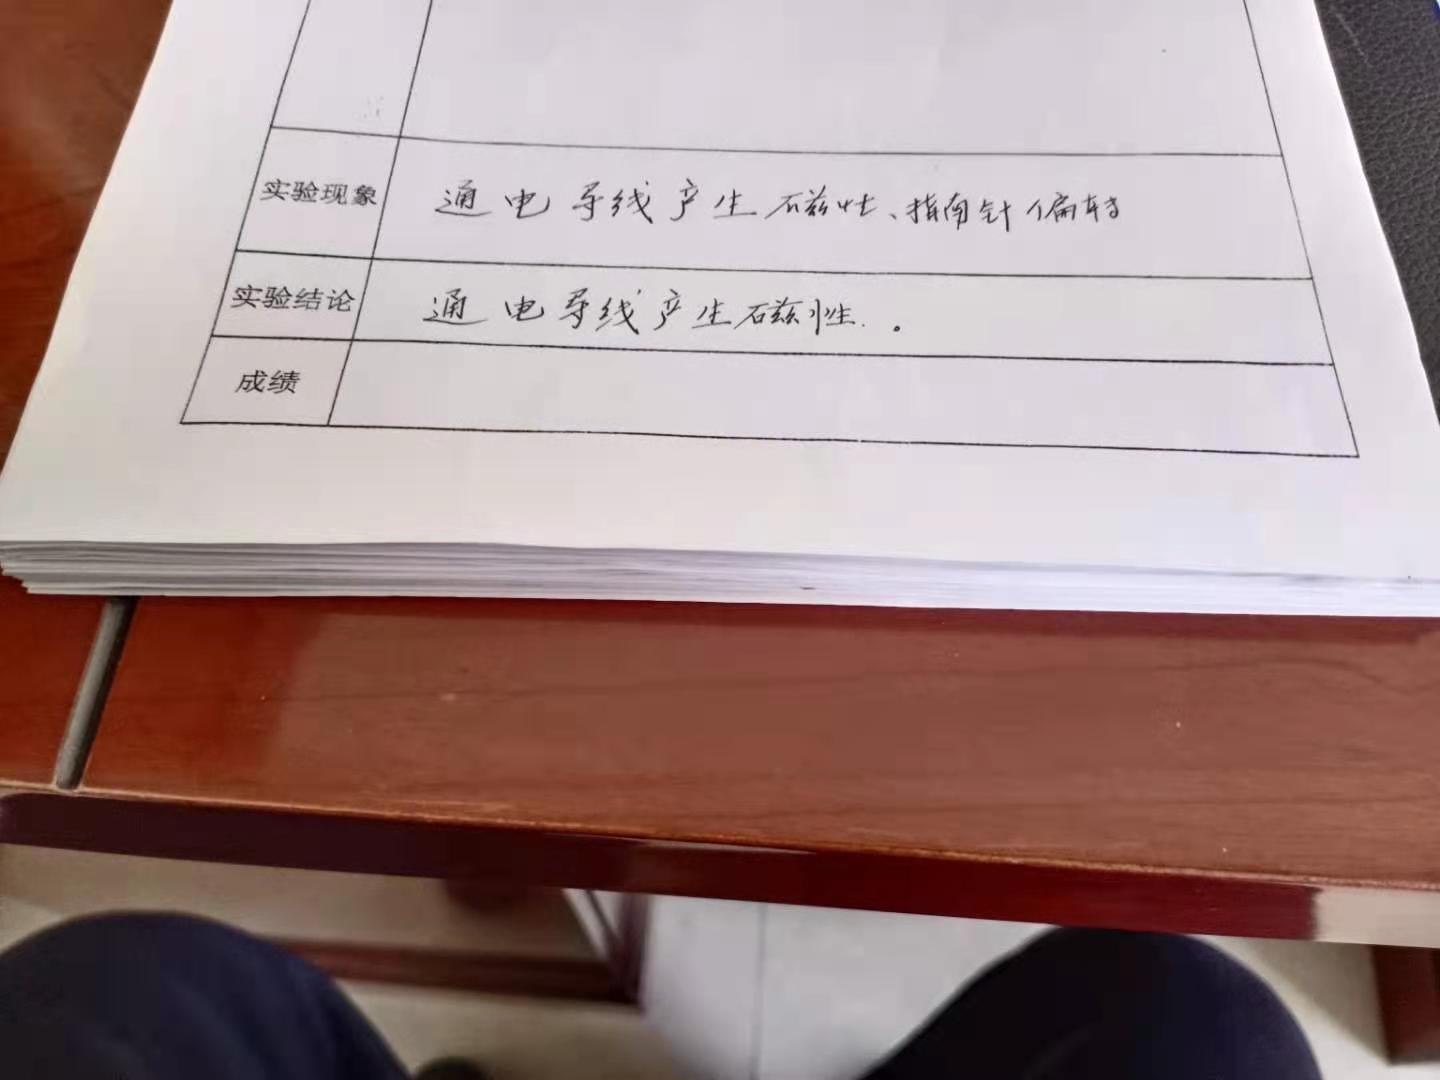 实验现象 通电导线产生磁性、指南针偏转
实验结论 通电导线产生磁性.。
成绩